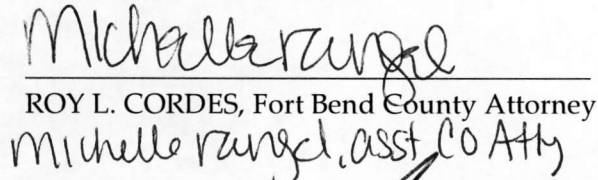 Michelle rangel
ROY L. CORDES, Fort Bend County Attorney
Michelle rangel, asst Co Atty